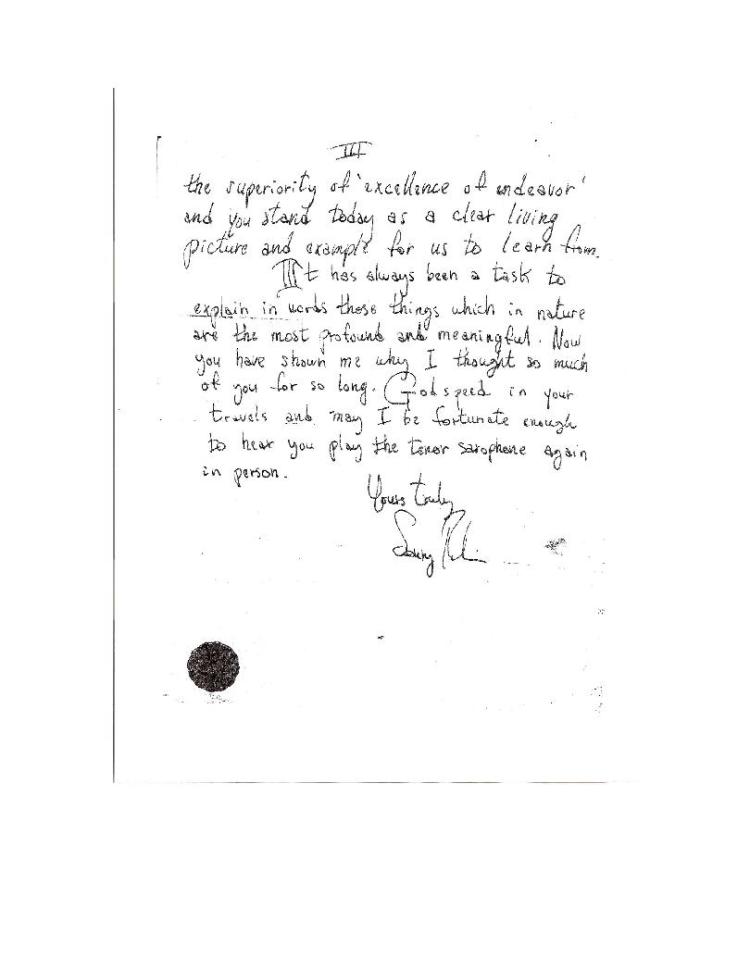 III
the superiority of 'excellence of endeavor'
and you stand today as a clear living
picture and example for us to learn from.
It has always been a task to
explain in words those things which in nature
are the most profound and meaningful. Now
you have shown me why I thought so much
of you for so long. Godspeed in your
travels and may I be fortunate enough
to hear you play the tenor saxophone again
in person.
Yours truly
Sonny Rollins